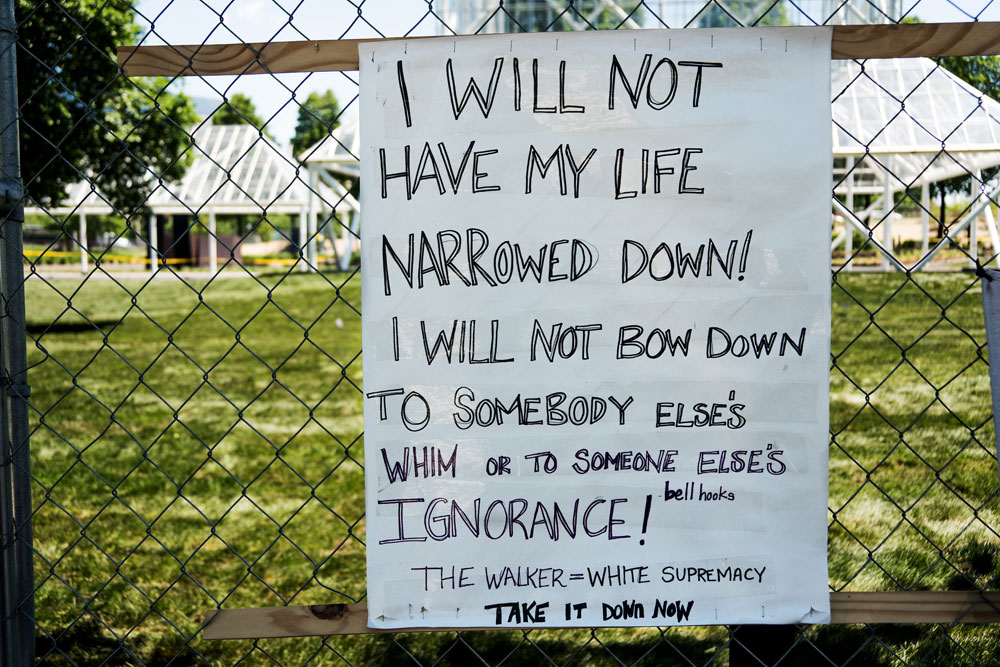 I WILL NOT
HAVE MY LIFE
NARROWED DOWN!
I WILL NOT BOW DOWN
TO SOMEBODY ELSE'S
WHIM OR TO SOMEONE ELSE'S
bell hooks
IGNORANCE!
THE WALKER=WHITE SUPREMACY
TAKE IT DOWN NOW